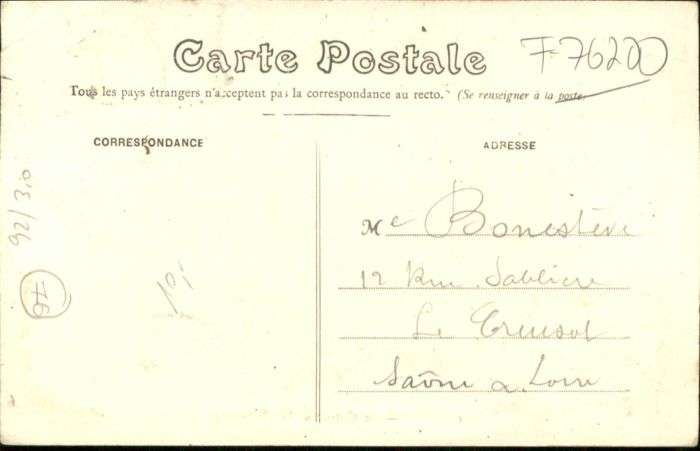 Carte Postale
F 76200
Tous les pays étrangers n'acceptent pas la correspondance au recto. (Se renseigner à la poste.
CORRESPONDANCE
ADRESSE
92/310
76
10,
Me Bonestève
12 Rue Sablière
Le Creusot
Saône a Loire